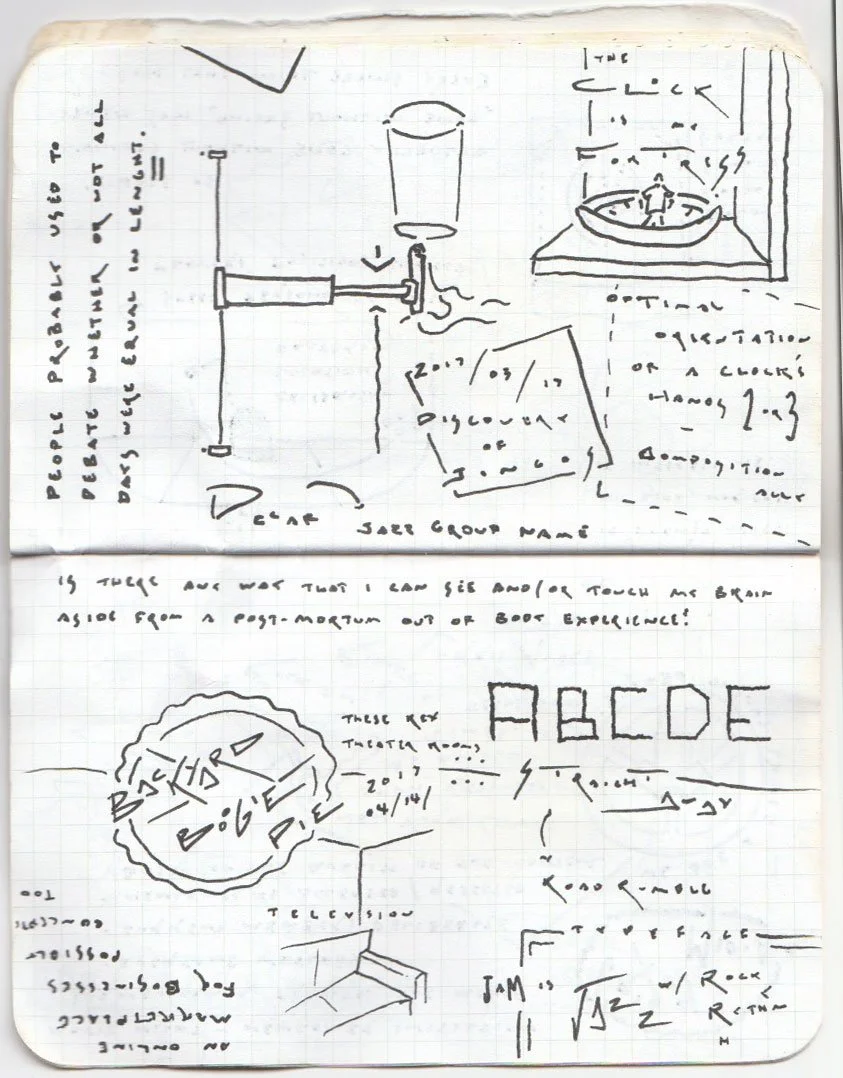 PEOPLE PROBABLY USED TO
DEBATE WHETHER OR NOT ALL
DAYS WERE EQUAL IN LENGHT.
THE
CLOCK
IS MY
FORTRESS
OPTIMAL
ORIENTATION
OF A CLOCK'S
HANDS [OR]
COMPOSITION
ALLY
2017/03/17
DISCOVERY
OF
JINGOS
DECAF
JAZZ GROUP NAME
IS THERE ANY WAY THAT I CAN SEE AND/OR TOUCH MY BRAIN
ASIDE FROM A POST-MORTUM OUT OF BODY EXPERIENCE?
ABCDE
BACKYARD
BOOGIE
PIE
THESE KEY
THEATER ROOMS
2017
04/14/
STRAIGHT
ROAD RUMBLE
TELEVISION
TYPEFACE
JAM IS JAZZ W/ ROCK
RYTHM
AN ONLINE
MARKETPLACE
FOR BUSINESSES
POSSIBLE
TOO